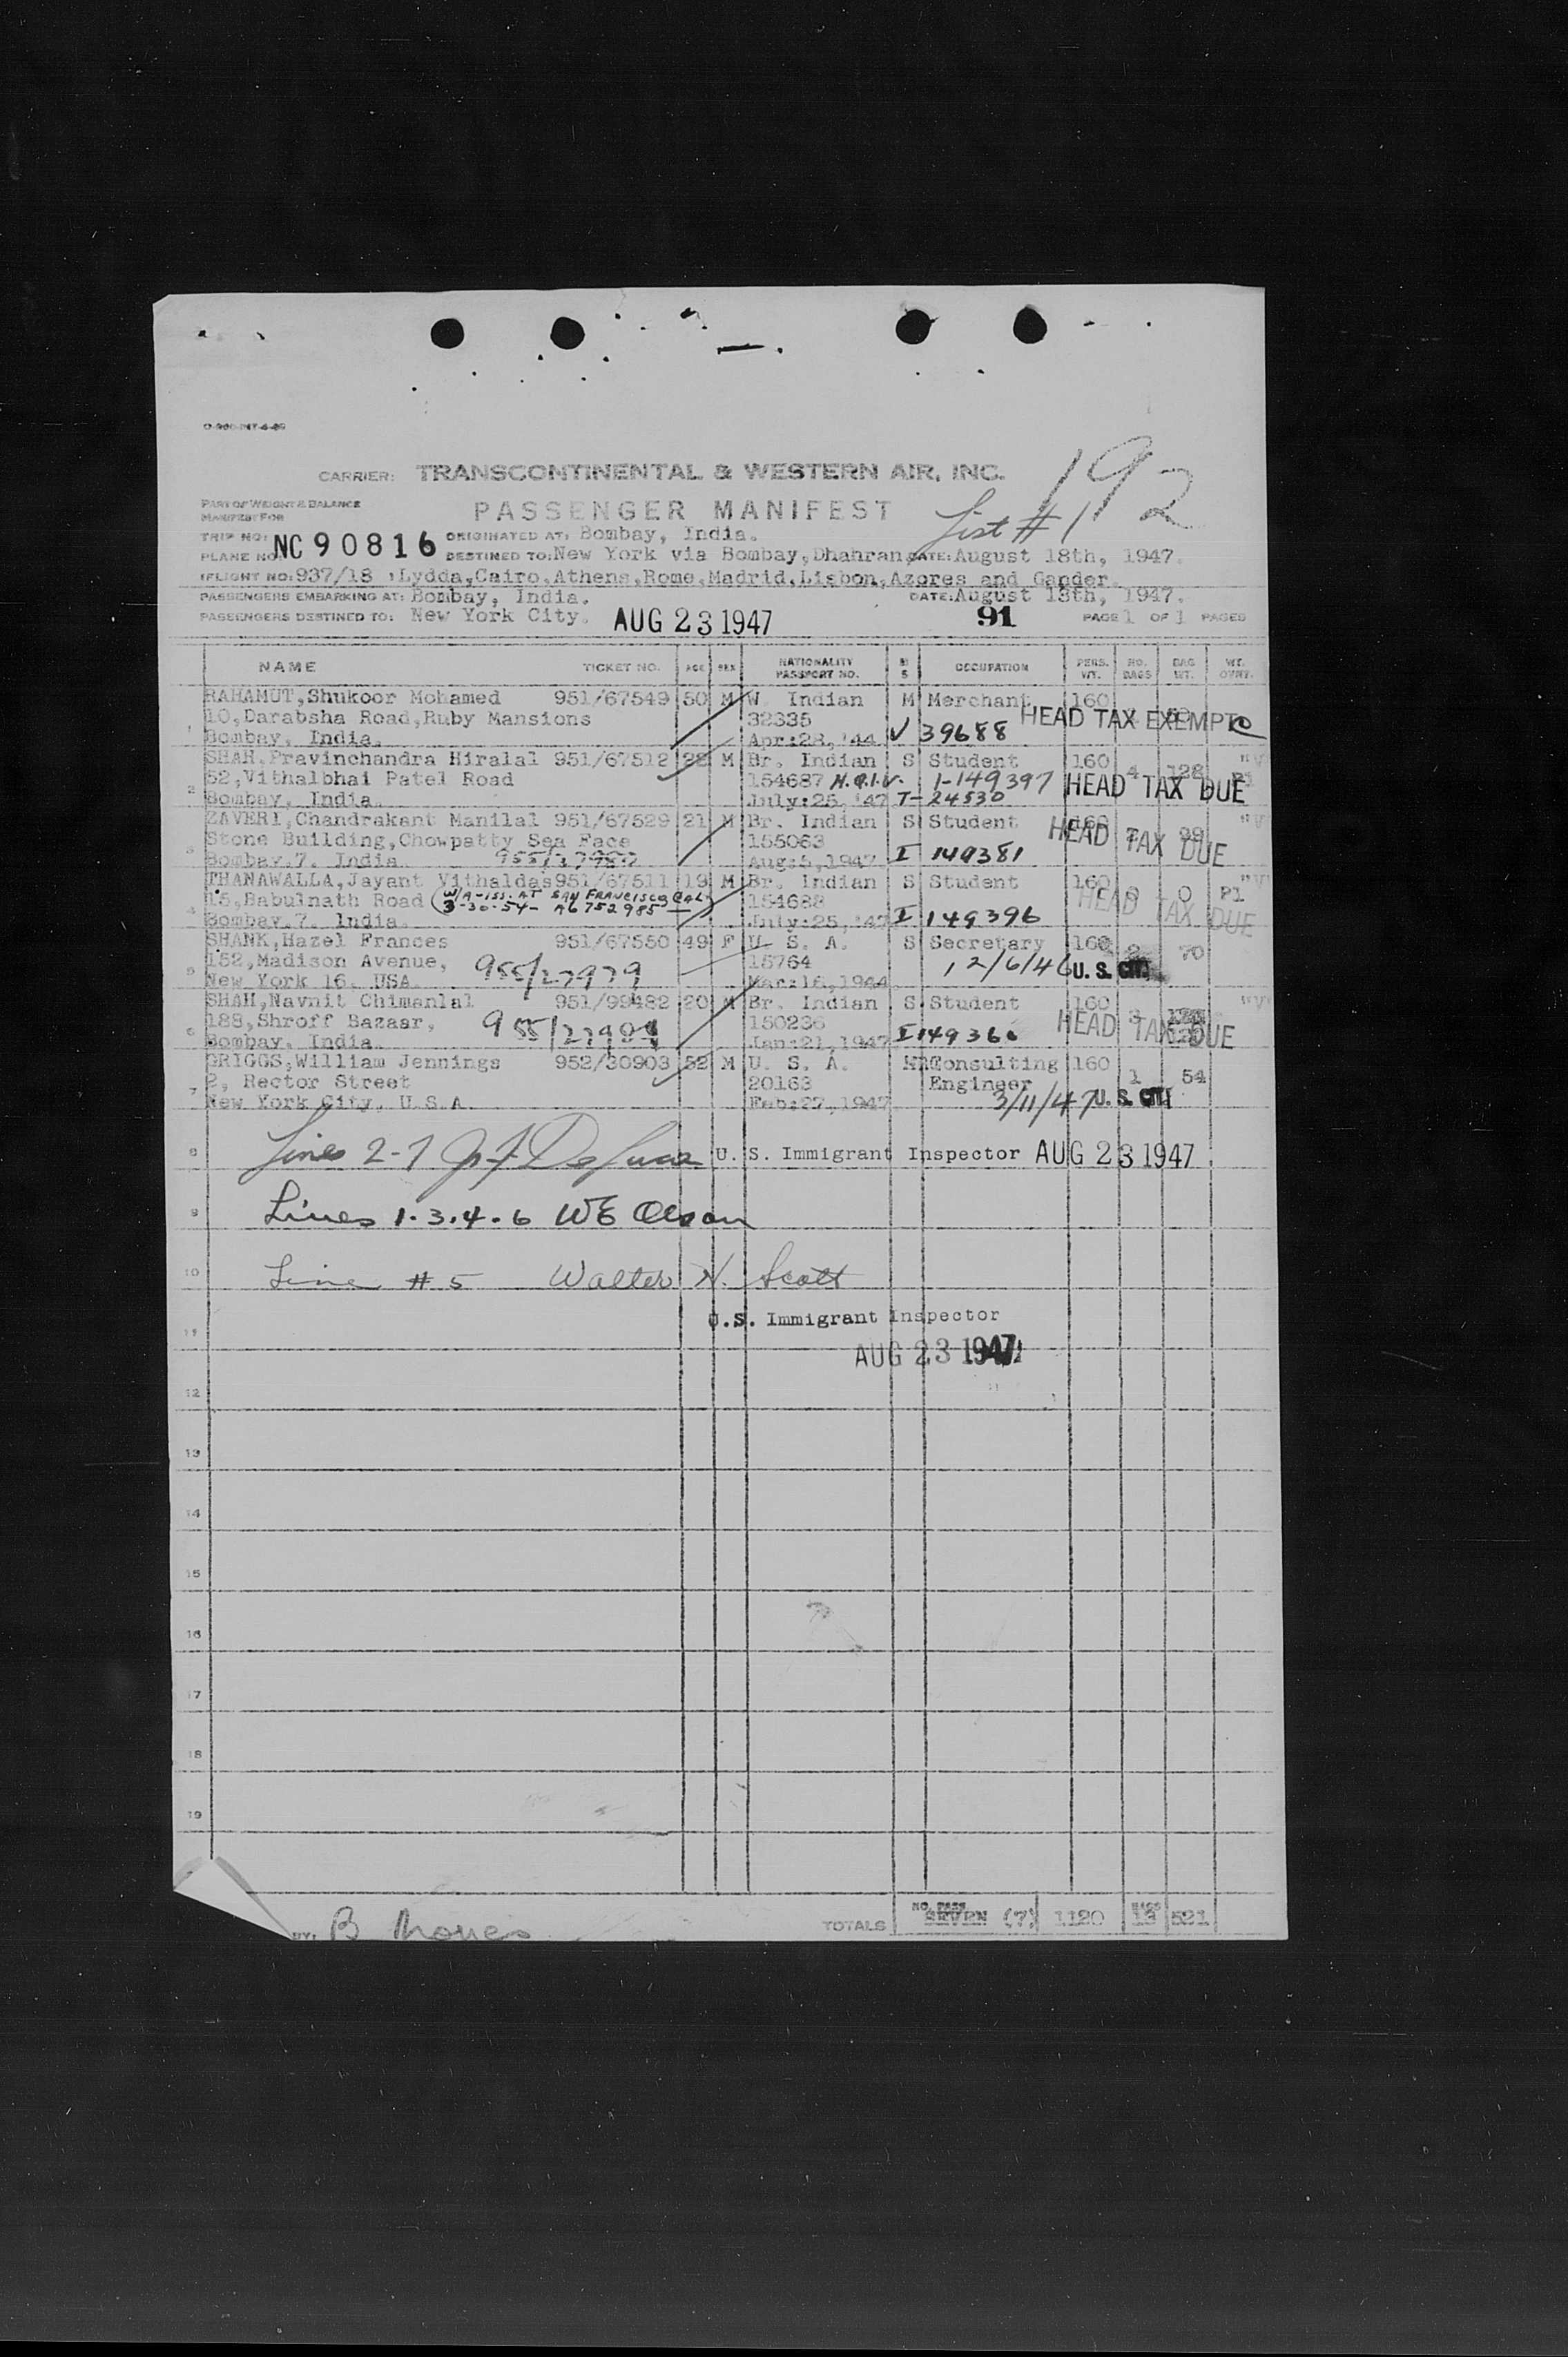 CARRIER: TRANSCONTINENTAL & WESTERN AIR, INC. 192
PART OF WEIGHT & BALANCE
MANIFEST FOR PASSENGER MANIFEST List #1
TRIP NO: ORIGINATED AT: Bombay, India.
PLANE NO NC90816 DESTINED TO: New York via Bombay, Dhahran, DATE: August 18th, 1947.
(FLIGHT NO: 937/18 : Lydda, Cairo, Athens, Rome, Madrid, Lisbon, Azores and Gander.
PASSENGERS EMBARKING AT: Bombay, India. DATE: August 18th, 1947.
PASSENGERS DESTINED TO: New York City. AUG 23 1947 91 PAGE 1 OF 1 PAGES
NAME TICKET NO. AGE SEX NATIONALITY PASSPORT NO. M S OCCUPATION PERS. WT. NO. BAGS BAG WT. WT. OVNY.
1 RAHAMUT, Shukoor Mohamed 951/67549 50 M W. Indian M Merchant 160
10, Darabsha Road, Ruby Mansions 32335 V 39688 HEAD TAX EXEMPT
Bombay, India. Apr:28, '44
2 SHAH, Pravinchandra Hiralal 951/67512 22 M Br. Indian S Student 160 "V
52, Vithalbhai Patel Road 154687 N.Q.I.V. 1-149397 4 128 P1 HEAD TAX DUE
Bombay, India. July:25, '47 T-24530
3 ZAVERI, Chandrakant Manilal 951/67529 21 M Br. Indian S Student 160 "V
Stone Building, Chowpatty Sea Face 155063 HEAD TAX DUE
Bombay.7. India. 955/27980 Aug:5, 1947 I 149381
4 THANAWALLA, Jayant Vithaldas 951/67511 19 M Br. Indian S Student 160 "V
15, Babulnath Road (W/A-ISS. AT SAN FRANCISCO CAL 154688 0 P1 HEAD TAX DUE
3-30-54- A6 752 985)
Bombay.7. India. July:25, '47 I 149396
5 SHANK, Hazel Frances 951/67550 49 F U. S. A. S Secretary 160 2 70
152, Madison Avenue, 955/27979 15764 12/6/46 U. S. CIT.
New York 16. USA. Mar:16, 1944
6 SHAH, Navnit Chimanlal 951/99482 20 M Br. Indian S Student 160 "V
188, Shroff Bazaar, 150236 3 HEAD TAX DUE
Bombay, India. Jan:21, 1947 I 149360
7 GRIGGS, William Jennings 952/30903 52 M U. S. A. Consulting 160
2, Rector Street 20163 Engineer 1 54
New York City, U.S.A. Feb:27, 1947 3/11/47 U. S. CIT.
8 Lines 2-7 U. S. Immigrant Inspector AUG 23 1947
9 Lines 1.3.4.6 WE Olson
10 Line #5 Walter N. Scott
11 U.S. Immigrant Inspector
AUG 23 1947
12
13
14
15
16
17
18
19
BY: B TOTALS NO. PASS SEVEN (7) 1120 BAGS 13 521